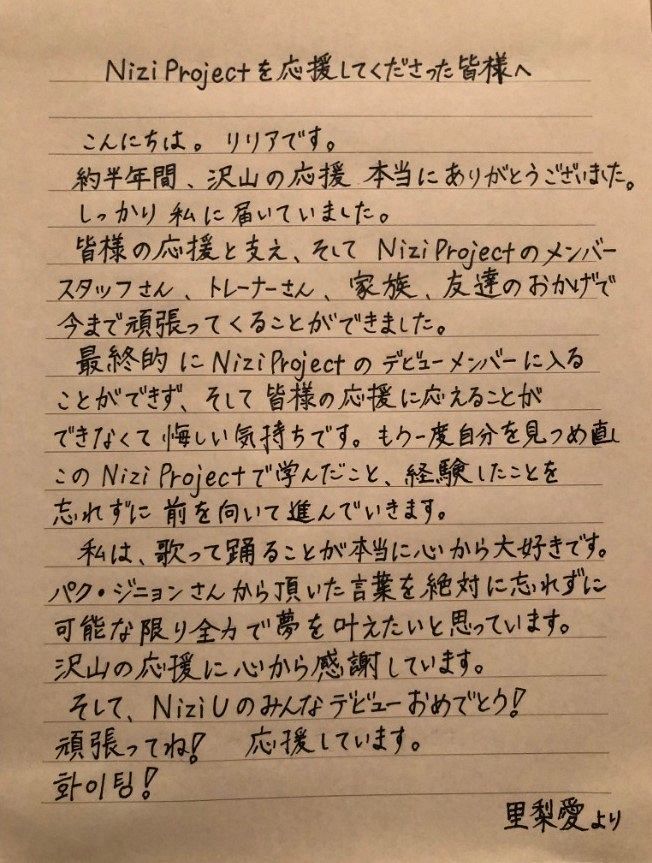 Nizi Projectを応援してくださった皆様へ
こんにちは。リリアです。
約半年間、沢山の応援 本当にありがとうございました。
しっかり私に届いていました。
皆様の応援と支え、そして Nizi Projectのメンバー
スタッフさん、トレーナーさん、家族、友達のおかげで
今まで頑張ってくることができました。
最終的に Nizi Projectの デビューメンバーに入る
ことができず、そして 皆様の応援に応えることが
できなくて 悔しい気持ちです。もう一度自分を見つめ直し
この Nizi Projectで学んだこと、経験したことを
忘れずに 前を向いて進んでいきます。
私は、歌って踊ることが本当に心から大好きです。
パク・ジニョンさんから頂いた言葉を絶対に忘れずに
可能な限り全力で夢を叶えたいと思っています。
沢山の応援に心から感謝しています。
そして、NiziUのみんなデビューおめでとう!
頑張ってね! 応援しています。
화이팅!
里梨愛より